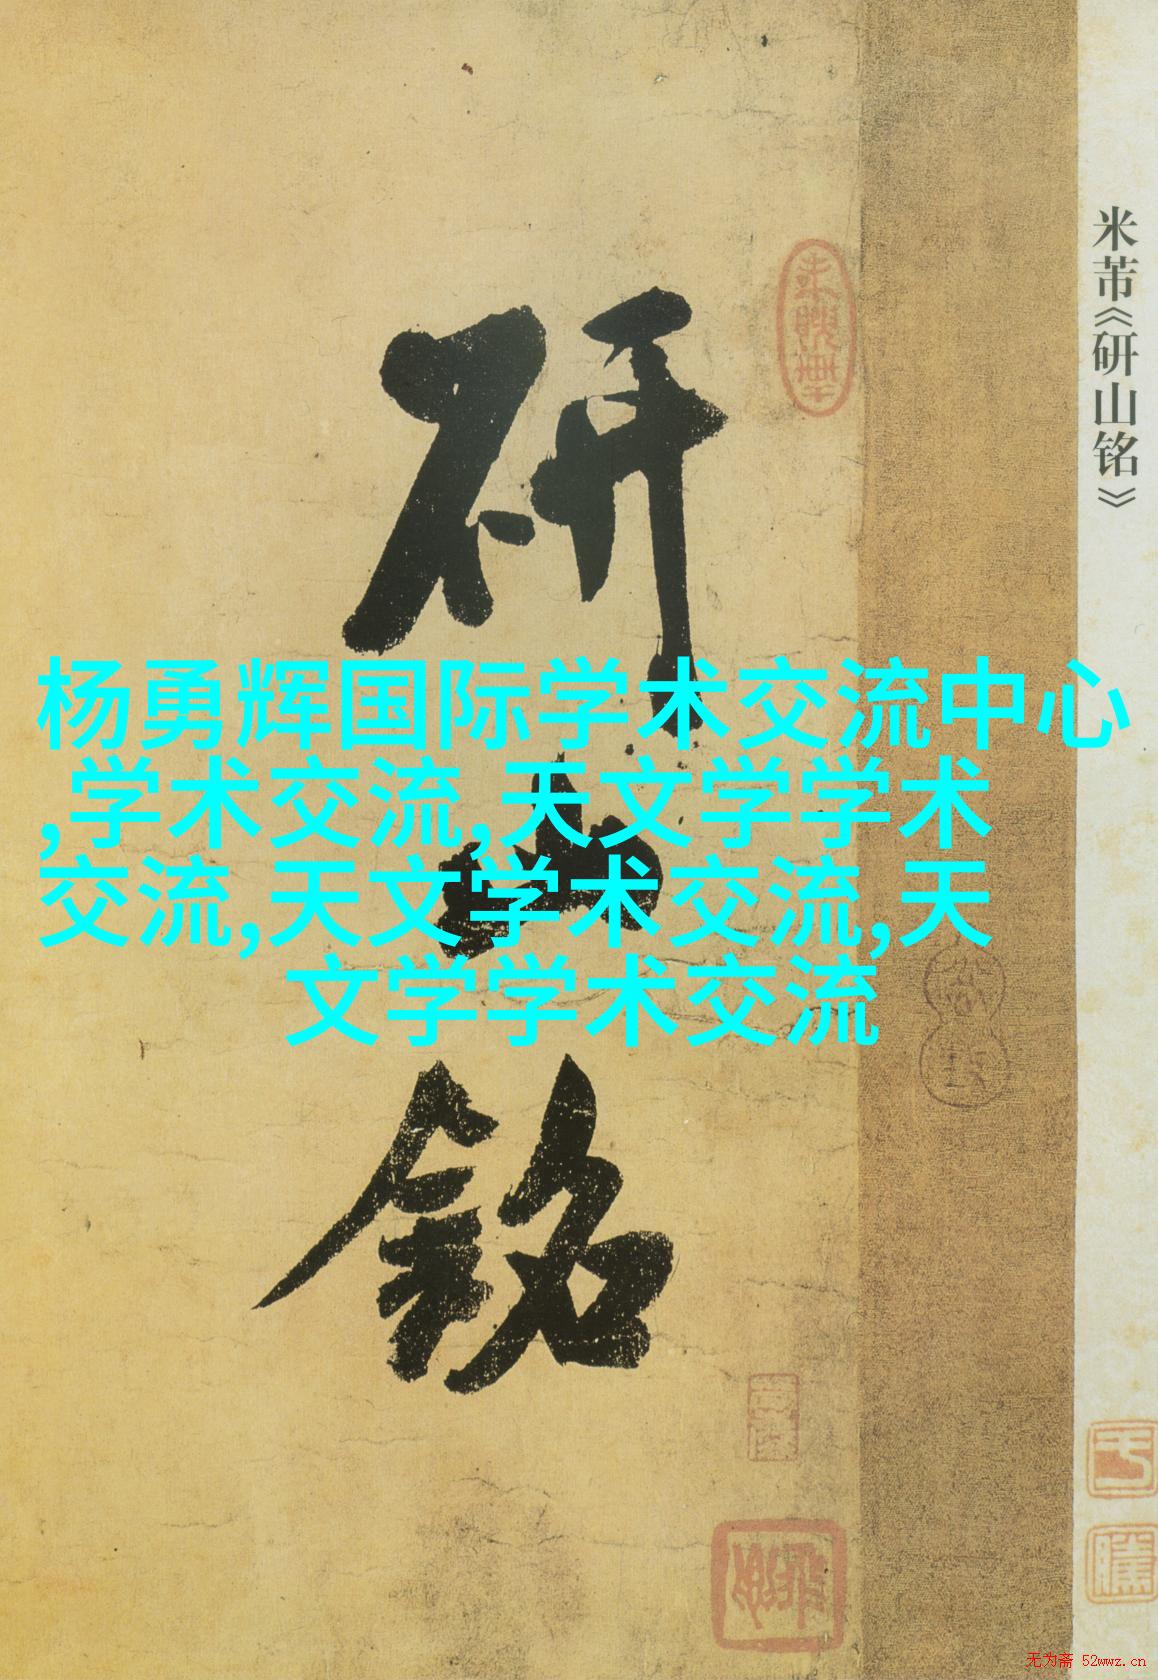 米芾《研山铭》
研山銘
杨勇辉国际学术交流中心
,学术交流,天文学学术
交流,天文学术交流,天
文学学术交流
无为斋 52wwz.cn